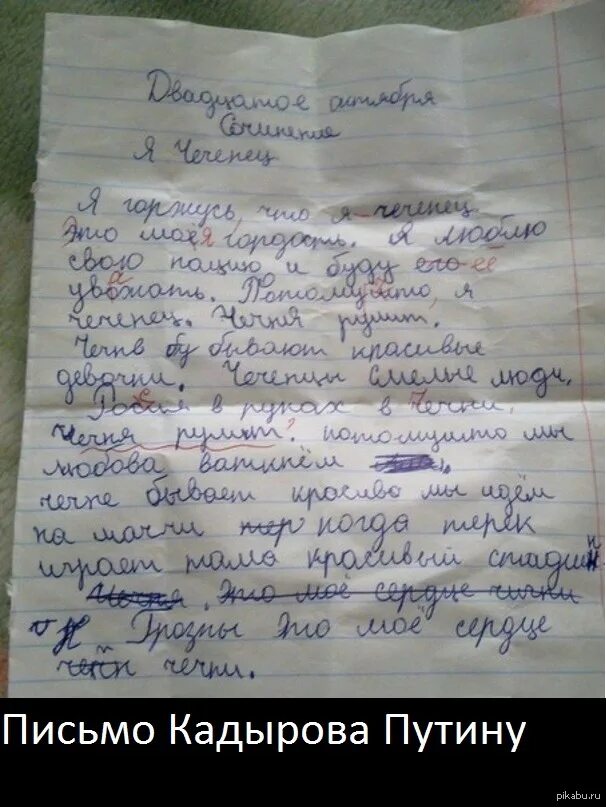 Двадцатое октября
Сочинение
Я Чеченец
Я горжусь, что я чеченец
Это моя гордость. Я люблю
свою нацию и буду его ее
уважать. Потомушто, я
чеченец. Чечня рулит.
Чечне бу бывают красивые
девочки. Чеченцы смелые люди.
Росия в руках в Чечни.
Чечня рулит? потомушто мы
любова
чечне бывает красиво мы идём
на матчи тер когда терек
играет тама красивый стадион
Чечня. Это моё сердце чички
Грозны Это моё сердце
чечни.
Письмо Кадырова Путину
pikabu.ru